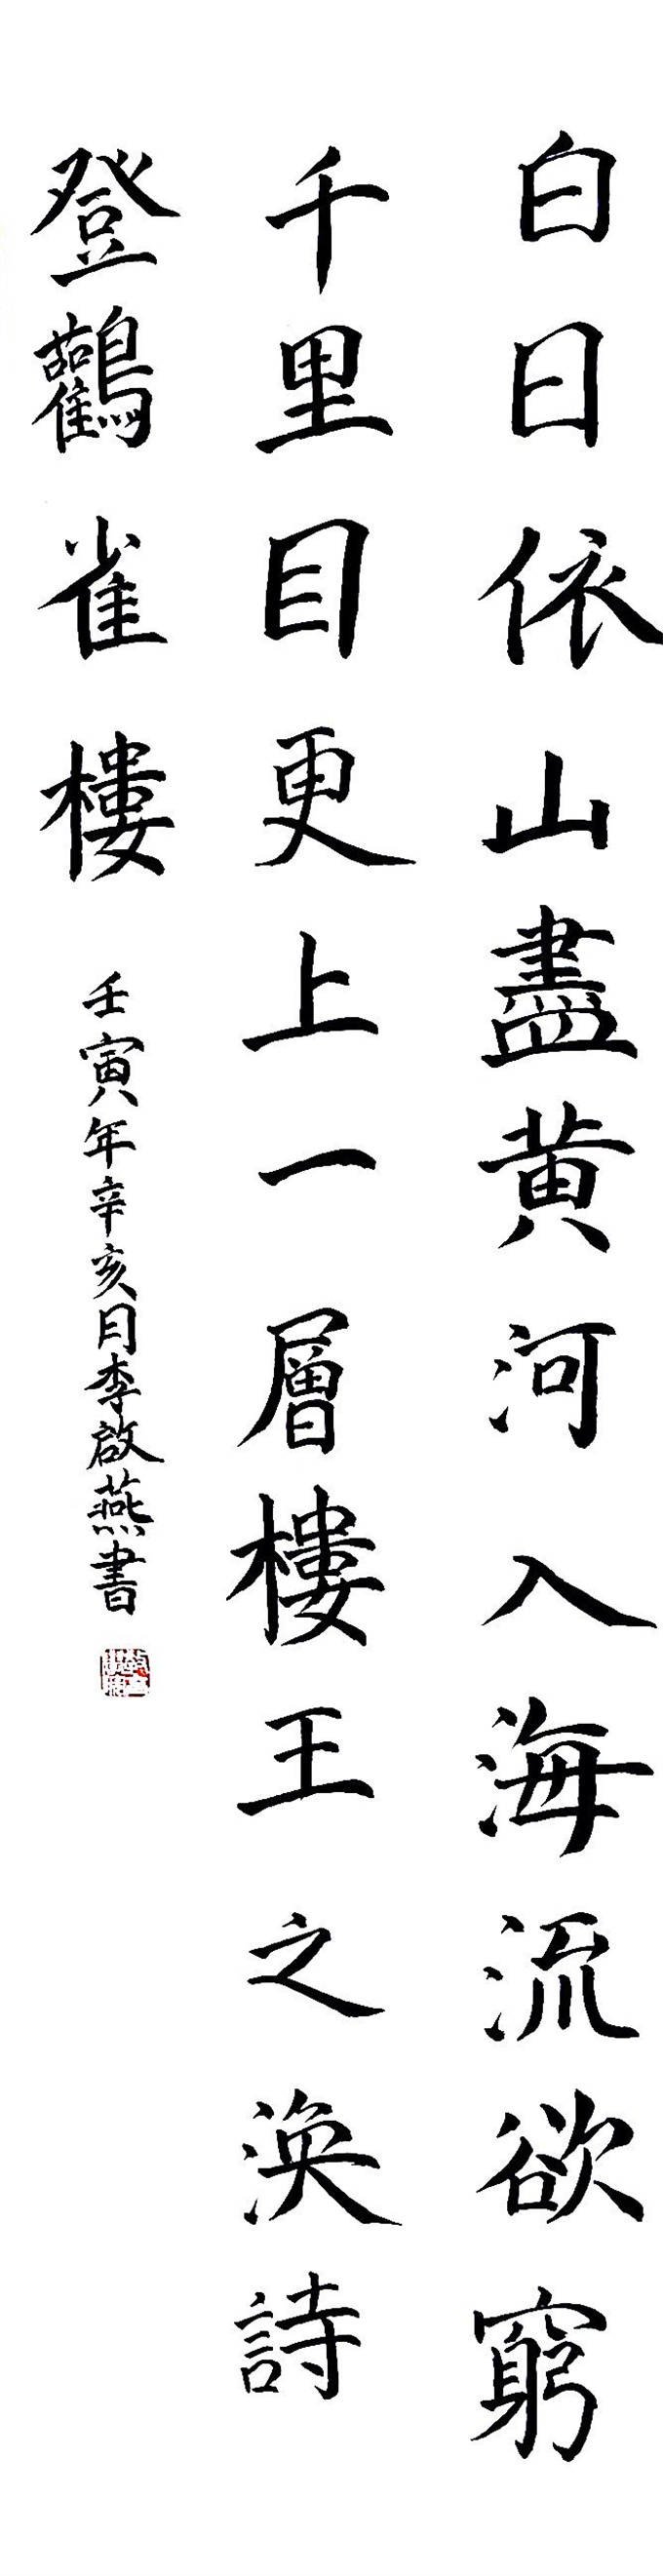 白日依山盡黄河入海流欲窮
千里目更上一層樓王之渙詩
登鸛雀樓
壬寅年辛亥月李啟燕書